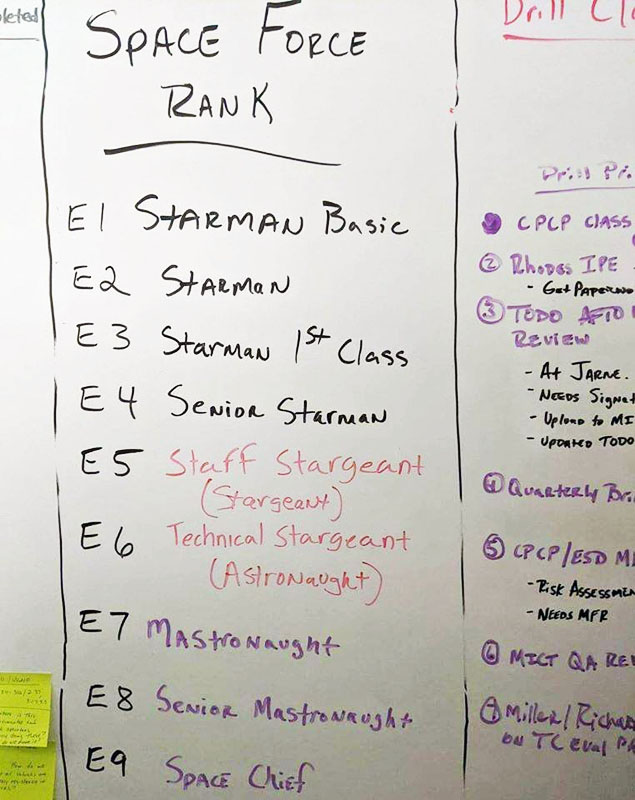 SPACE FORCE
RANK
E1 STARMAN Basic
E2 STARMAN
E3 Starman 1st Class
E4 Senior Starman
E5 Staff Stargeant
(Stargeant)
E6 Technical Stargeant
(Astronaught)
E7 Mastronaught
E8 Senior Mastronaught
E9 Space Chief
Drill
Drill
CPCP CLASS
② Rhodes IPE
- Get
③ TODO AFTO
REVIEW
- At JARNE.
- NEEDS
- Upload to
- UPDATED TODO
④ Quarterly
⑤ CPCP/ESD
- Risk
- NEEDS MFR
⑥ MICT QA
⑦ Miller/
ON TC eval